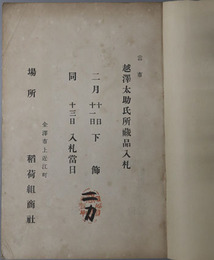 当市
越澤太助氏所蔵品入札
二月 十日 十一日 下飾
同 十三日 入札當日
場所 金澤市上近江町 稻荷組商社